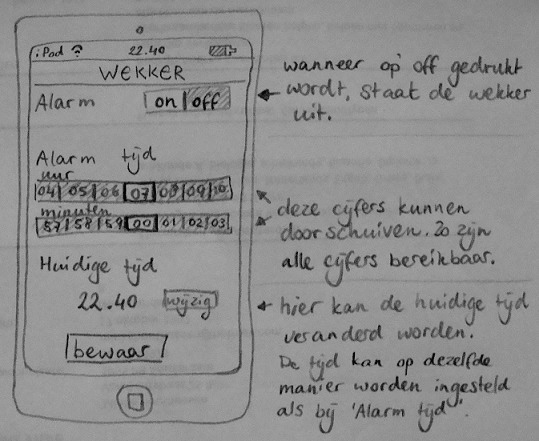 iPod 22.40
WEKKER
Alarm on off
Alarm tijd
uur
04 05 06 07 08 09 10
minuten
57 58 59 00 01 02 03
Huidige tijd
22.40 wijzig
bewaar
wanneer op off gedrukt
wordt, staat de wekker
uit.
deze cijfers kunnen
doorschuiven. Zo zijn
alle cijfers bereikbaar.
hier kan de huidige tijd
veranderd worden.
De tijd kan op dezelfde
manier worden ingesteld
als bij 'Alarm tijd'.